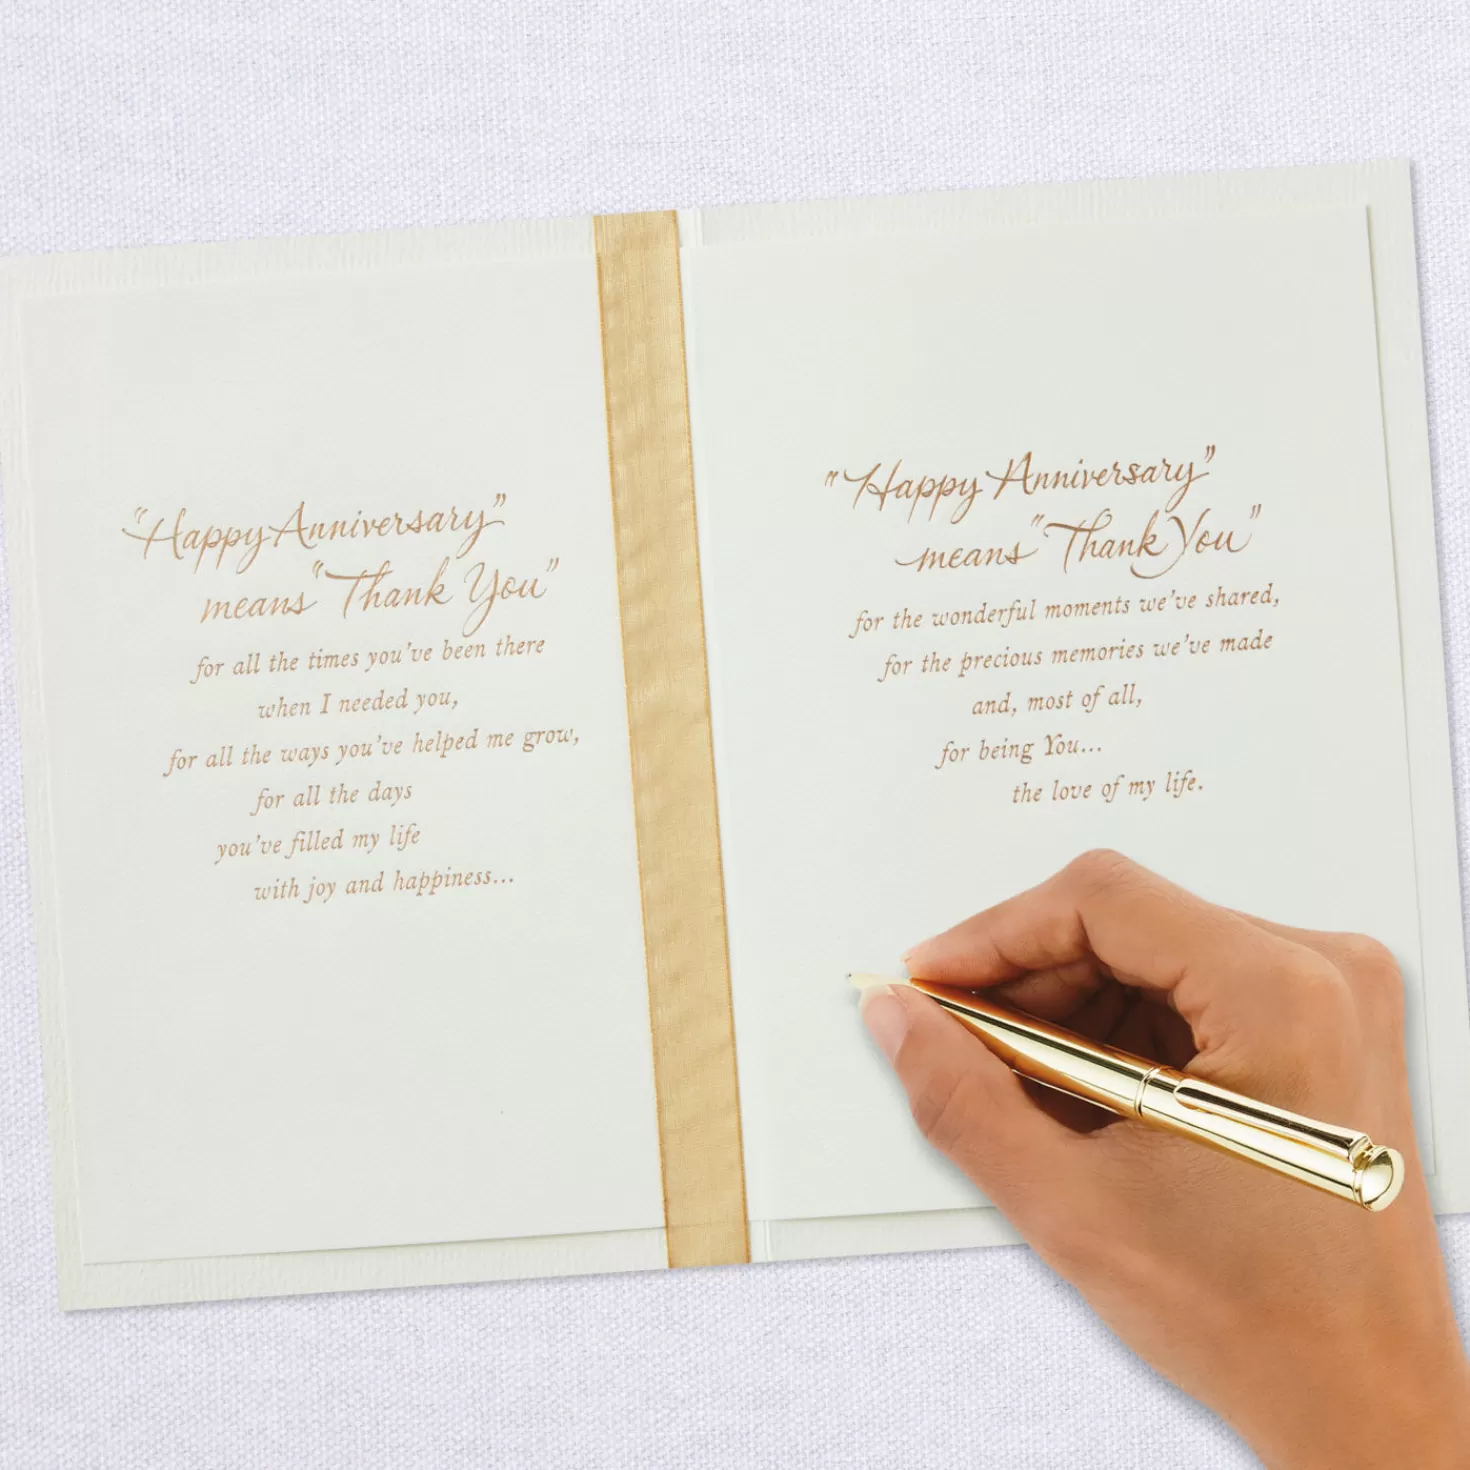 "Happy Anniversary"
means "Thank You"
for all the times you've been there
when I needed you,
for all the ways you've helped me grow,
for all the days
you've filled my life
with joy and happiness...
"Happy Anniversary"
means "Thank You"
for the wonderful moments we've shared,
for the precious memories we've made
and, most of all,
for being You...
the love of my life.